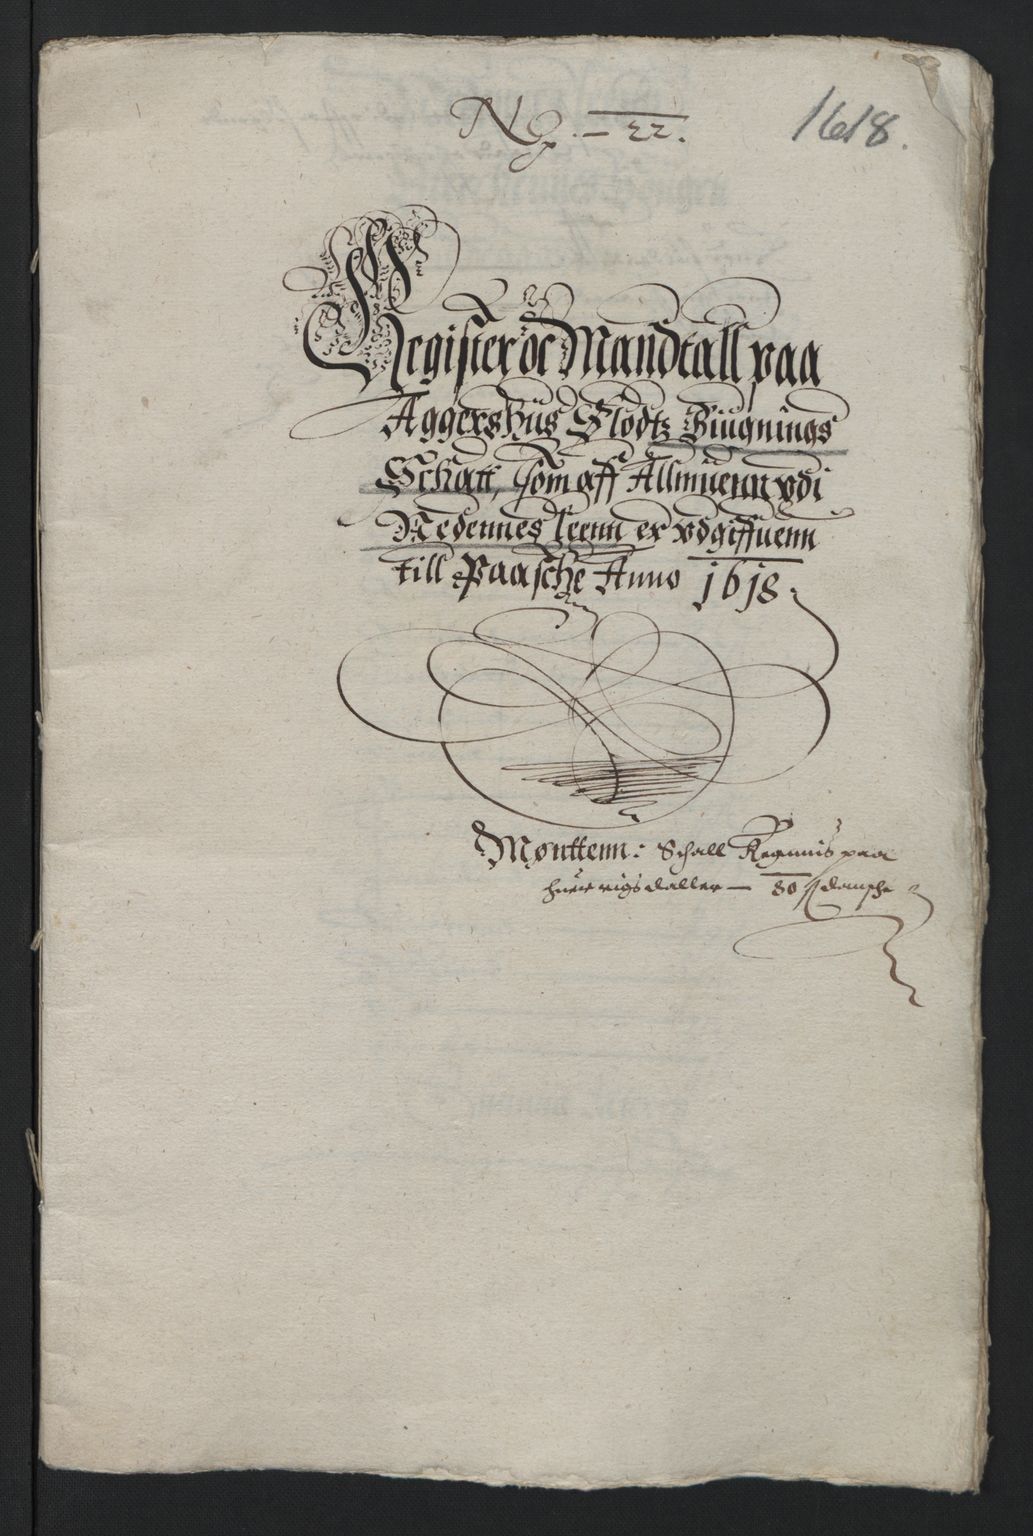 No. — 22.
1618.
Register oc Mandtall paa
Aggershüs Slodtz Biugnings
Schatt, som aff Allmüenn vdi
Nedennes leenn er vdgiffuenn
till Paasche Anno 1618.
Møntten: Schall Regnnis paa
huer rigsdaller — 80 ß dansche